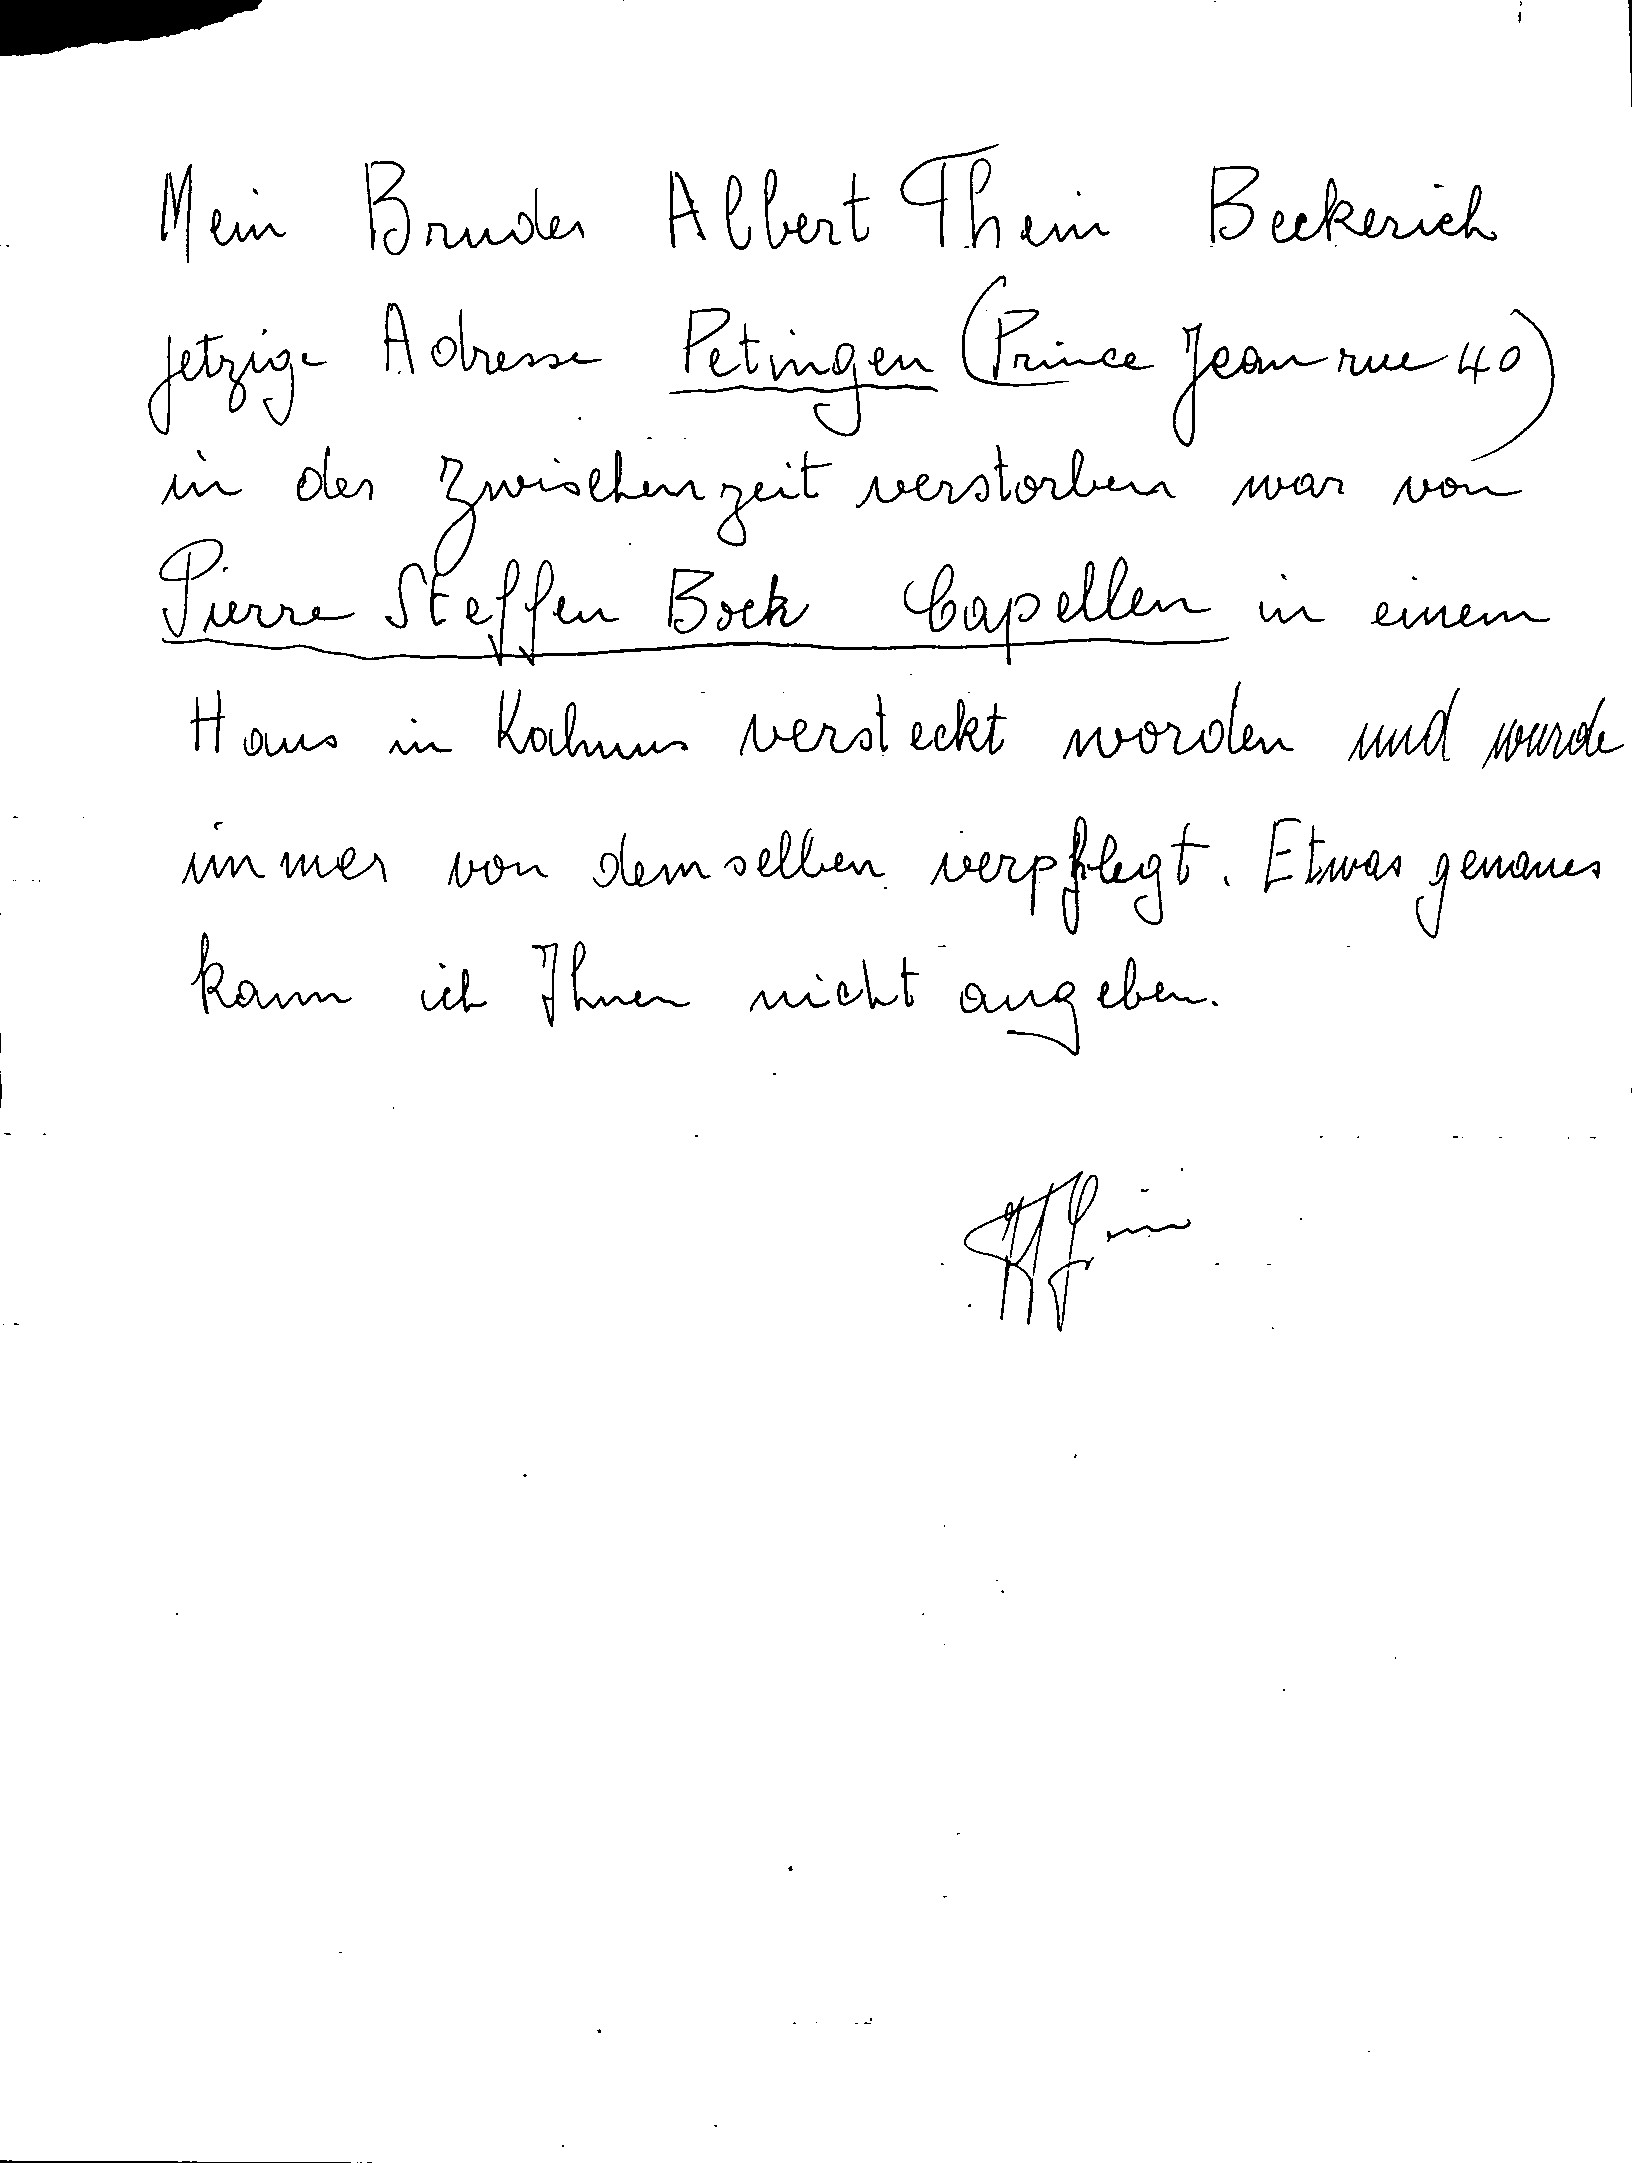 Mein Bruder Albert Thein Beckerich
jetzige Adresse Petingen (Prince Jean rue 40)
in der Zwischenzeit verstorben war von
Pierre Steffen Bock Capellen in einem
Haus in Kahmus versteckt worden und wurde
immer von demselben verpflegt. Etwas genaues
kann ich Ihnen nicht angeben.